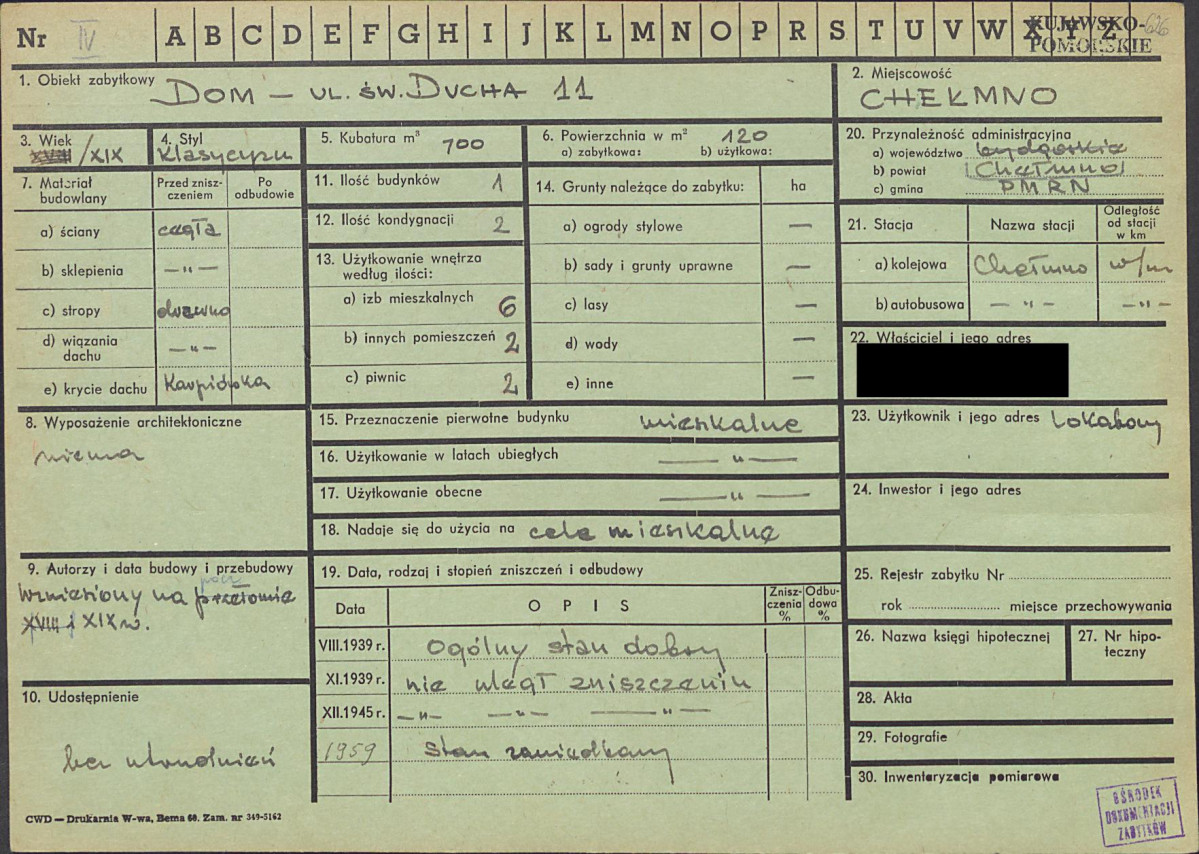 Nr IV A B C D E F G H I J K L M N O P R S T U V W X Y Z 626
KUJAWSKO-
POMORSKIE
1. Obiekt zabytkowy DOM — UL. ŚW. DUCHA 11
2. Miejscowość
CHEŁMNO
3. Wiek
XVIII/XIX
4. Styl
Klasycyzm
5. Kubatura m³ 700
6. Powierzchnia w m² 120
a) zabytkowa: b) użytkowa:
20. Przynależność administracyjna
a) województwo bydgoskie
b) powiat Chełmno
c) gmina PMRN
7. Materiał budowlany
Przed zniszczeniem
Po odbudowie
a) ściany cegła
b) sklepienia —"—
c) stropy drzewno
d) wiązania dachu —"—
e) krycie dachu Karpiówka
11. Ilość budynków 1
12. Ilość kondygnacji 2
13. Użytkowanie wnętrza
według ilości:
a) izb mieszkalnych 6
b) innych pomieszczeń 2
c) piwnic 2
14. Grunty należące do zabytku: ha
a) ogrody stylowe —
b) sady i grunty uprawne —
c) lasy —
d) wody —
e) inne —
21. Stacja Nazwa stacji Odległość od stacji w km
a) kolejowa Chełmno w/m
b) autobusowa —"— —"—
22. Właściciel i jego adres
8. Wyposażenie architektoniczne
niema
15. Przeznaczenie pierwotne budynku mieszkalne
16. Użytkowanie w latach ubiegłych —"—
17. Użytkowanie obecne —"—
18. Nadaje się do użycia na cele mieszkalne
23. Użytkownik i jego adres lokatorzy
24. Inwestor i jego adres
9. Autorzy i data budowy i przebudowy
pocz.
Wzniesiony na przełomie
XVIII i XIX w.
10. Udostępnienie
bez utrudnień
19. Data, rodzaj i stopień zniszczeń i odbudowy
Data OPIS Zniszczenia % Odbudowa %
VIII.1939 r. Ogólny stan dobry
XI.1939 r. nie uległ zniszczeniu
XII.1945 r. —"— —"— —"—
1959 stan zaniedbany
25. Rejestr zabytku Nr
rok miejsce przechowywania
26. Nazwa księgi hipotecznej
27. Nr hipoteczny
28. Akta
29. Fotografie
30. Inwentaryzacja pomiarowa
OŚRODEK
DOKUMENTACJI
ZABYTKÓW
CWD — Drukarnia W-wa, Bema 60. Zam. nr 349-5162